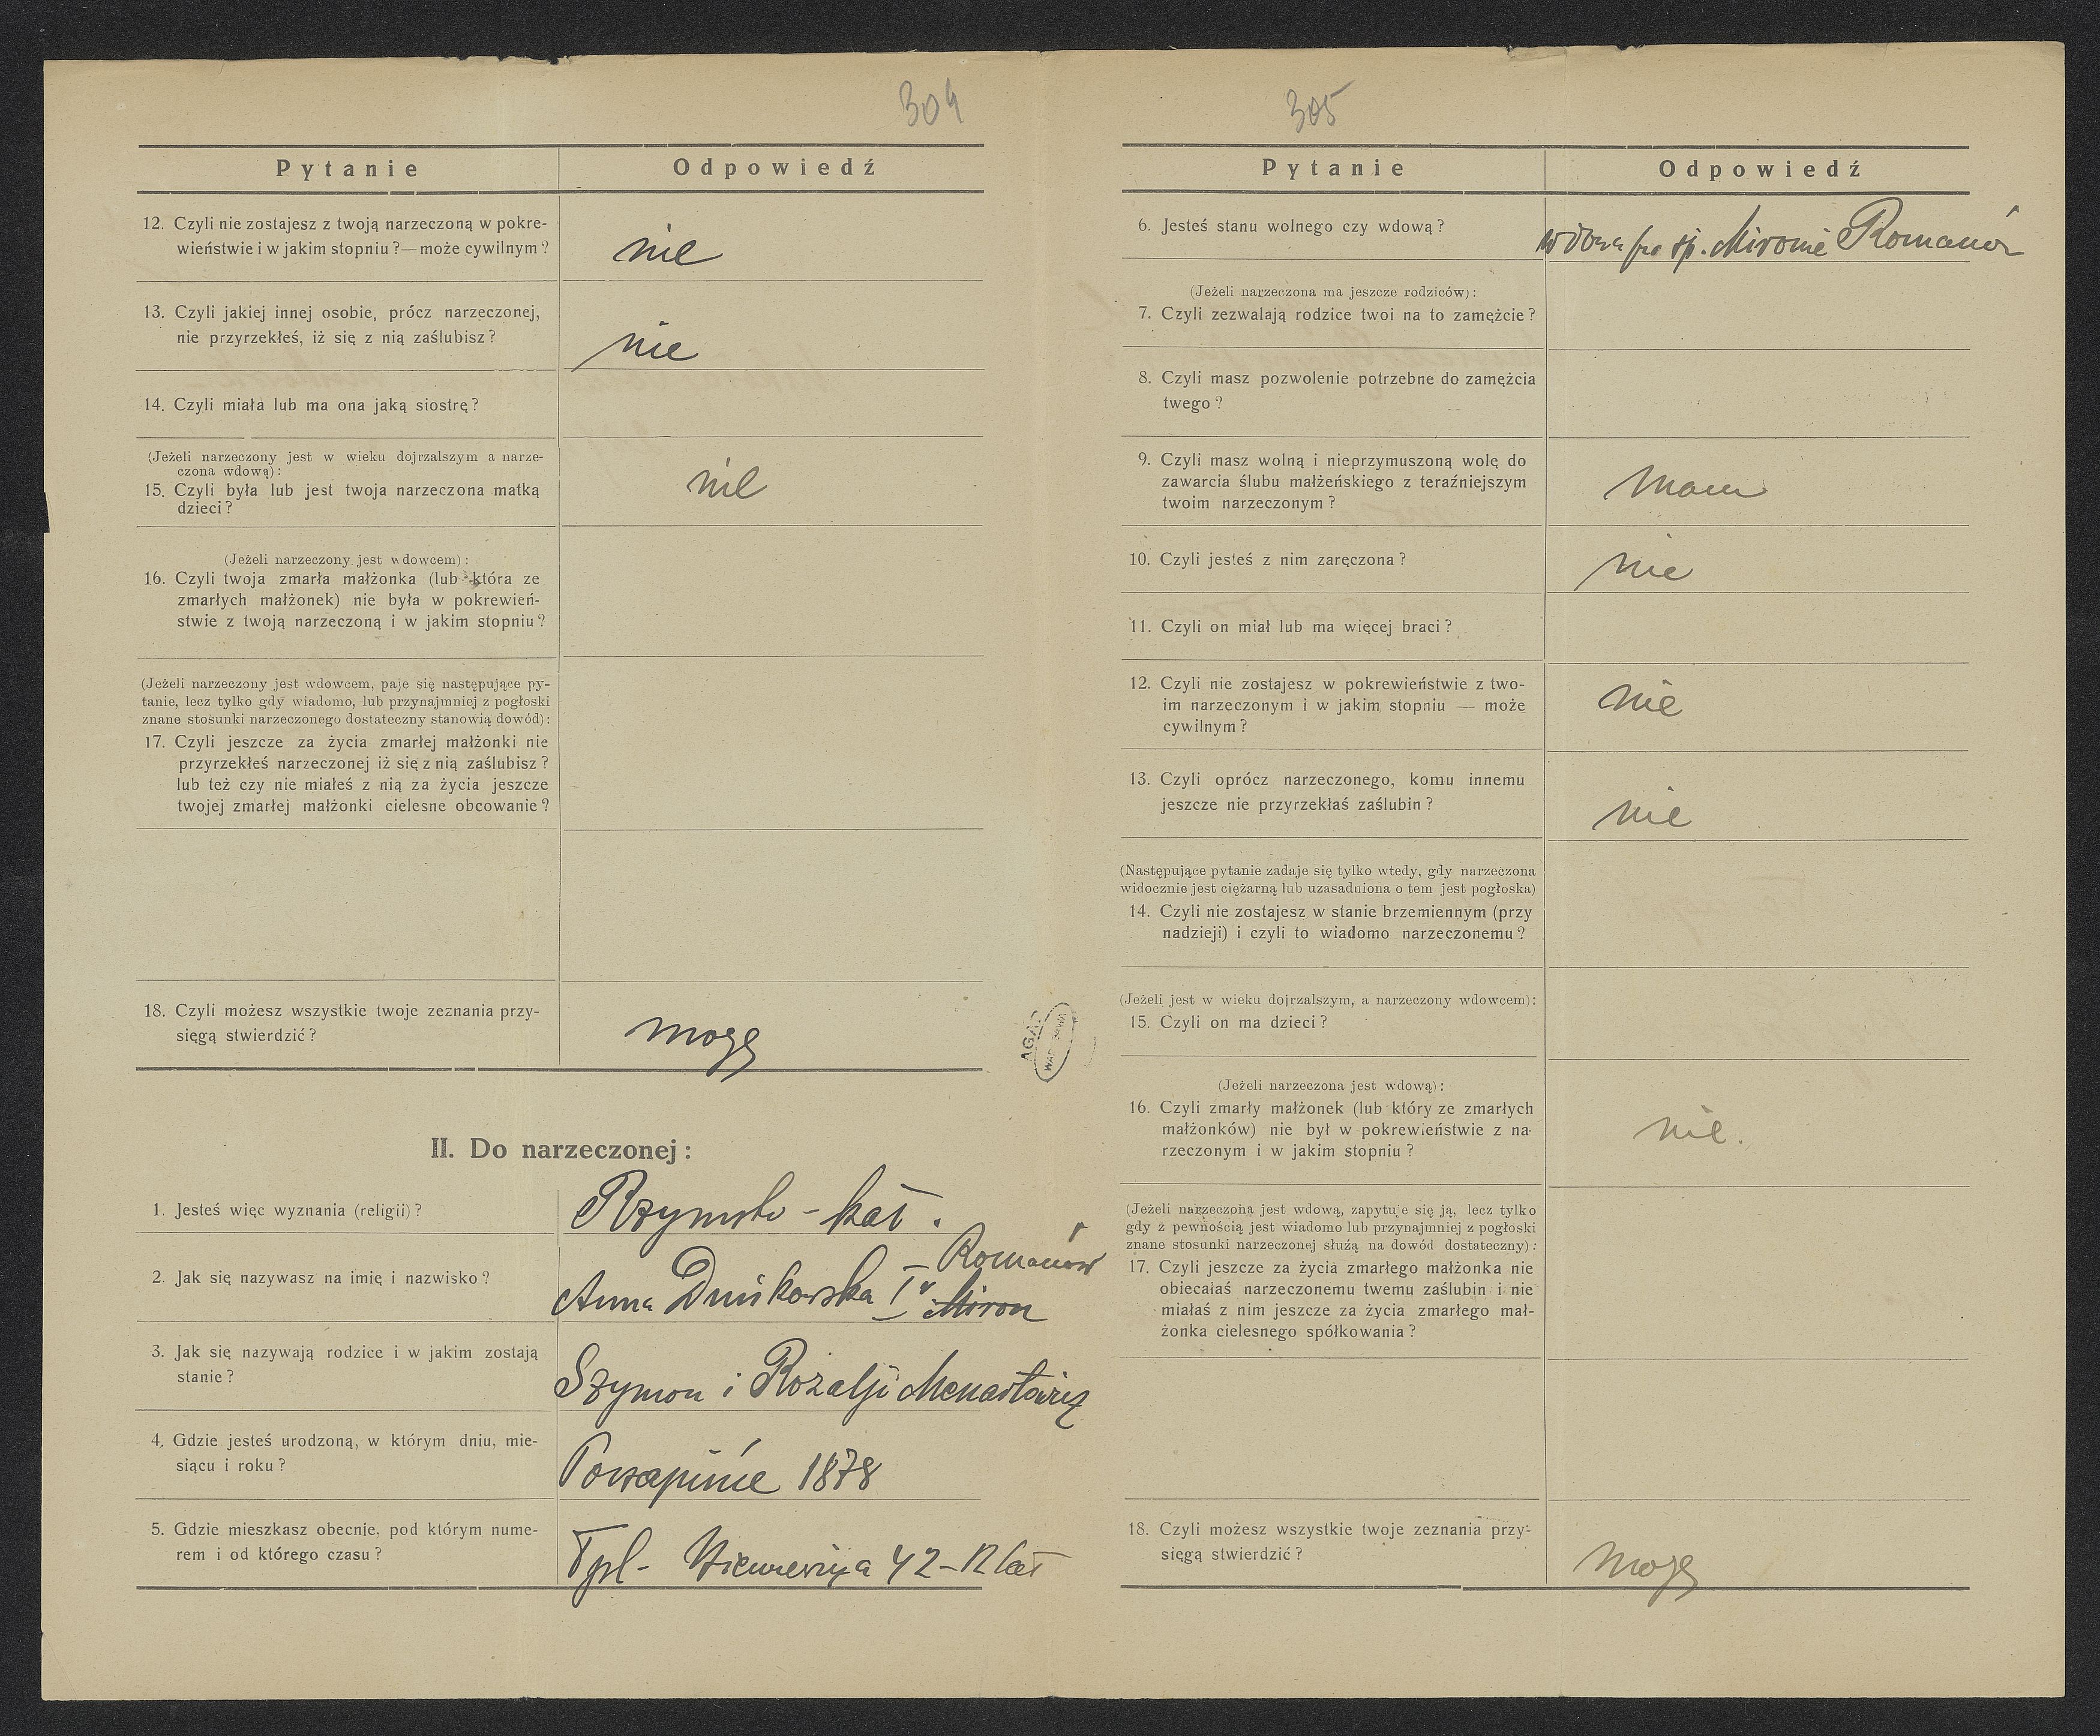 304
Pytanie Odpowiedź
12. Czyli nie zostajesz z twoją narzeczoną w pokre-
wieństwie i w jakim stopniu?—może cywilnym?
nie
13. Czyli jakiej innej osobie, prócz narzeczonej,
nie przyrzekłeś, iż się z nią zaślubisz?
nie
14. Czyli miała lub ma ona jaką siostrę?
(Jeżeli narzeczony jest w wieku dojrzalszym a narze-
czona wdową):
15. Czyli była lub jest twoja narzeczona matką
dzieci?
nie
(Jeżeli narzeczony jest wdowcem):
16. Czyli twoja zmarła małżonka (lub która ze
zmarłych małżonek) nie była w pokrewień-
stwie z twoją narzeczoną i w jakim stopniu?
(Jeżeli narzeczony jest wdowcem, paje się następujące py-
tanie, lecz tylko gdy wiadomo, lub przynajmniej z pogłoski
znane stosunki narzeczonego dostateczny stanowią dowód):
17. Czyli jeszcze za życia zmarłej małżonki nie
przyrzekłeś narzeczonej iż się z nią zaślubisz?
lub też czy nie miałeś z nią za życia jeszcze
twojej zmarłej małżonki cielesne obcowanie?
18. Czyli możesz wszystkie twoje zeznania przy-
sięgą stwierdzić?
mogę
II. Do narzeczonej:
1. Jesteś więc wyznania (religii)?
Rzymsko-kat.
2. Jak się nazywasz na imię i nazwisko?
Romanów
Anna Duńkowska Iv Miron
3. Jak się nazywają rodzice i w jakim zostają
stanie?
Szymon i Rozalji
4. Gdzie jesteś urodzoną, w którym dniu, mie-
siącu i roku?
1878
5. Gdzie mieszkasz obecnie, pod którym nume-
rem i od którego czasu?
Tpl- 42-12 lat
AGAD
305
Pytanie Odpowiedź
6. Jesteś stanu wolnego czy wdową?
wdowa po śp. Mironie Romanów
(Jeżeli narzeczona ma jeszcze rodziców):
7. Czyli zezwalają rodzice twoi na to zamężcie?
8. Czyli masz pozwolenie potrzebne do zamężcia
twego?
9. Czyli masz wolną i nieprzymuszoną wolę do
zawarcia ślubu małżeńskiego z teraźniejszym
twoim narzeczonym?
mam
10. Czyli jesteś z nim zaręczona?
nie
11. Czyli on miał lub ma więcej braci?
12. Czyli nie zostajesz w pokrewieństwie z two-
im narzeczonym i w jakim stopniu — może
cywilnym?
nie
13. Czyli oprócz narzeczonego, komu innemu
jeszcze nie przyrzekłaś zaślubin?
nie
(Następujące pytanie zadaje się tylko wtedy, gdy narzeczona
widocznie jest ciężarną lub uzasadniona o tem jest pogłoska)
14. Czyli nie zostajesz w stanie brzemiennym (przy
nadzieji) i czyli to wiadomo narzeczonemu?
(Jeżeli jest w wieku dojrzalszym, a narzeczony wdowcem):
15. Czyli on ma dzieci?
(Jeżeli narzeczona jest wdową):
16. Czyli zmarły małżonek (lub który ze zmarłych
małżonków) nie był w pokrewieństwie z na-
rzeczonym i w jakim stopniu?
nie.
(Jeżeli narzeczona jest wdową, zapytuje się ją, lecz tylko
gdy z pewnością jest wiadomo lub przynajmniej z pogłoski
znane stosunki narzeczonej służą na dowód dostateczny):
17. Czyli jeszcze za życia zmarłego małżonka nie
obiecałaś narzeczonemu twemu zaślubin i nie
miałaś z nim jeszcze za życia zmarłego mał-
żonka cielesnego spółkowania?
18. Czyli możesz wszystkie twoje zeznania przy-
sięgą stwierdzić?
mogę